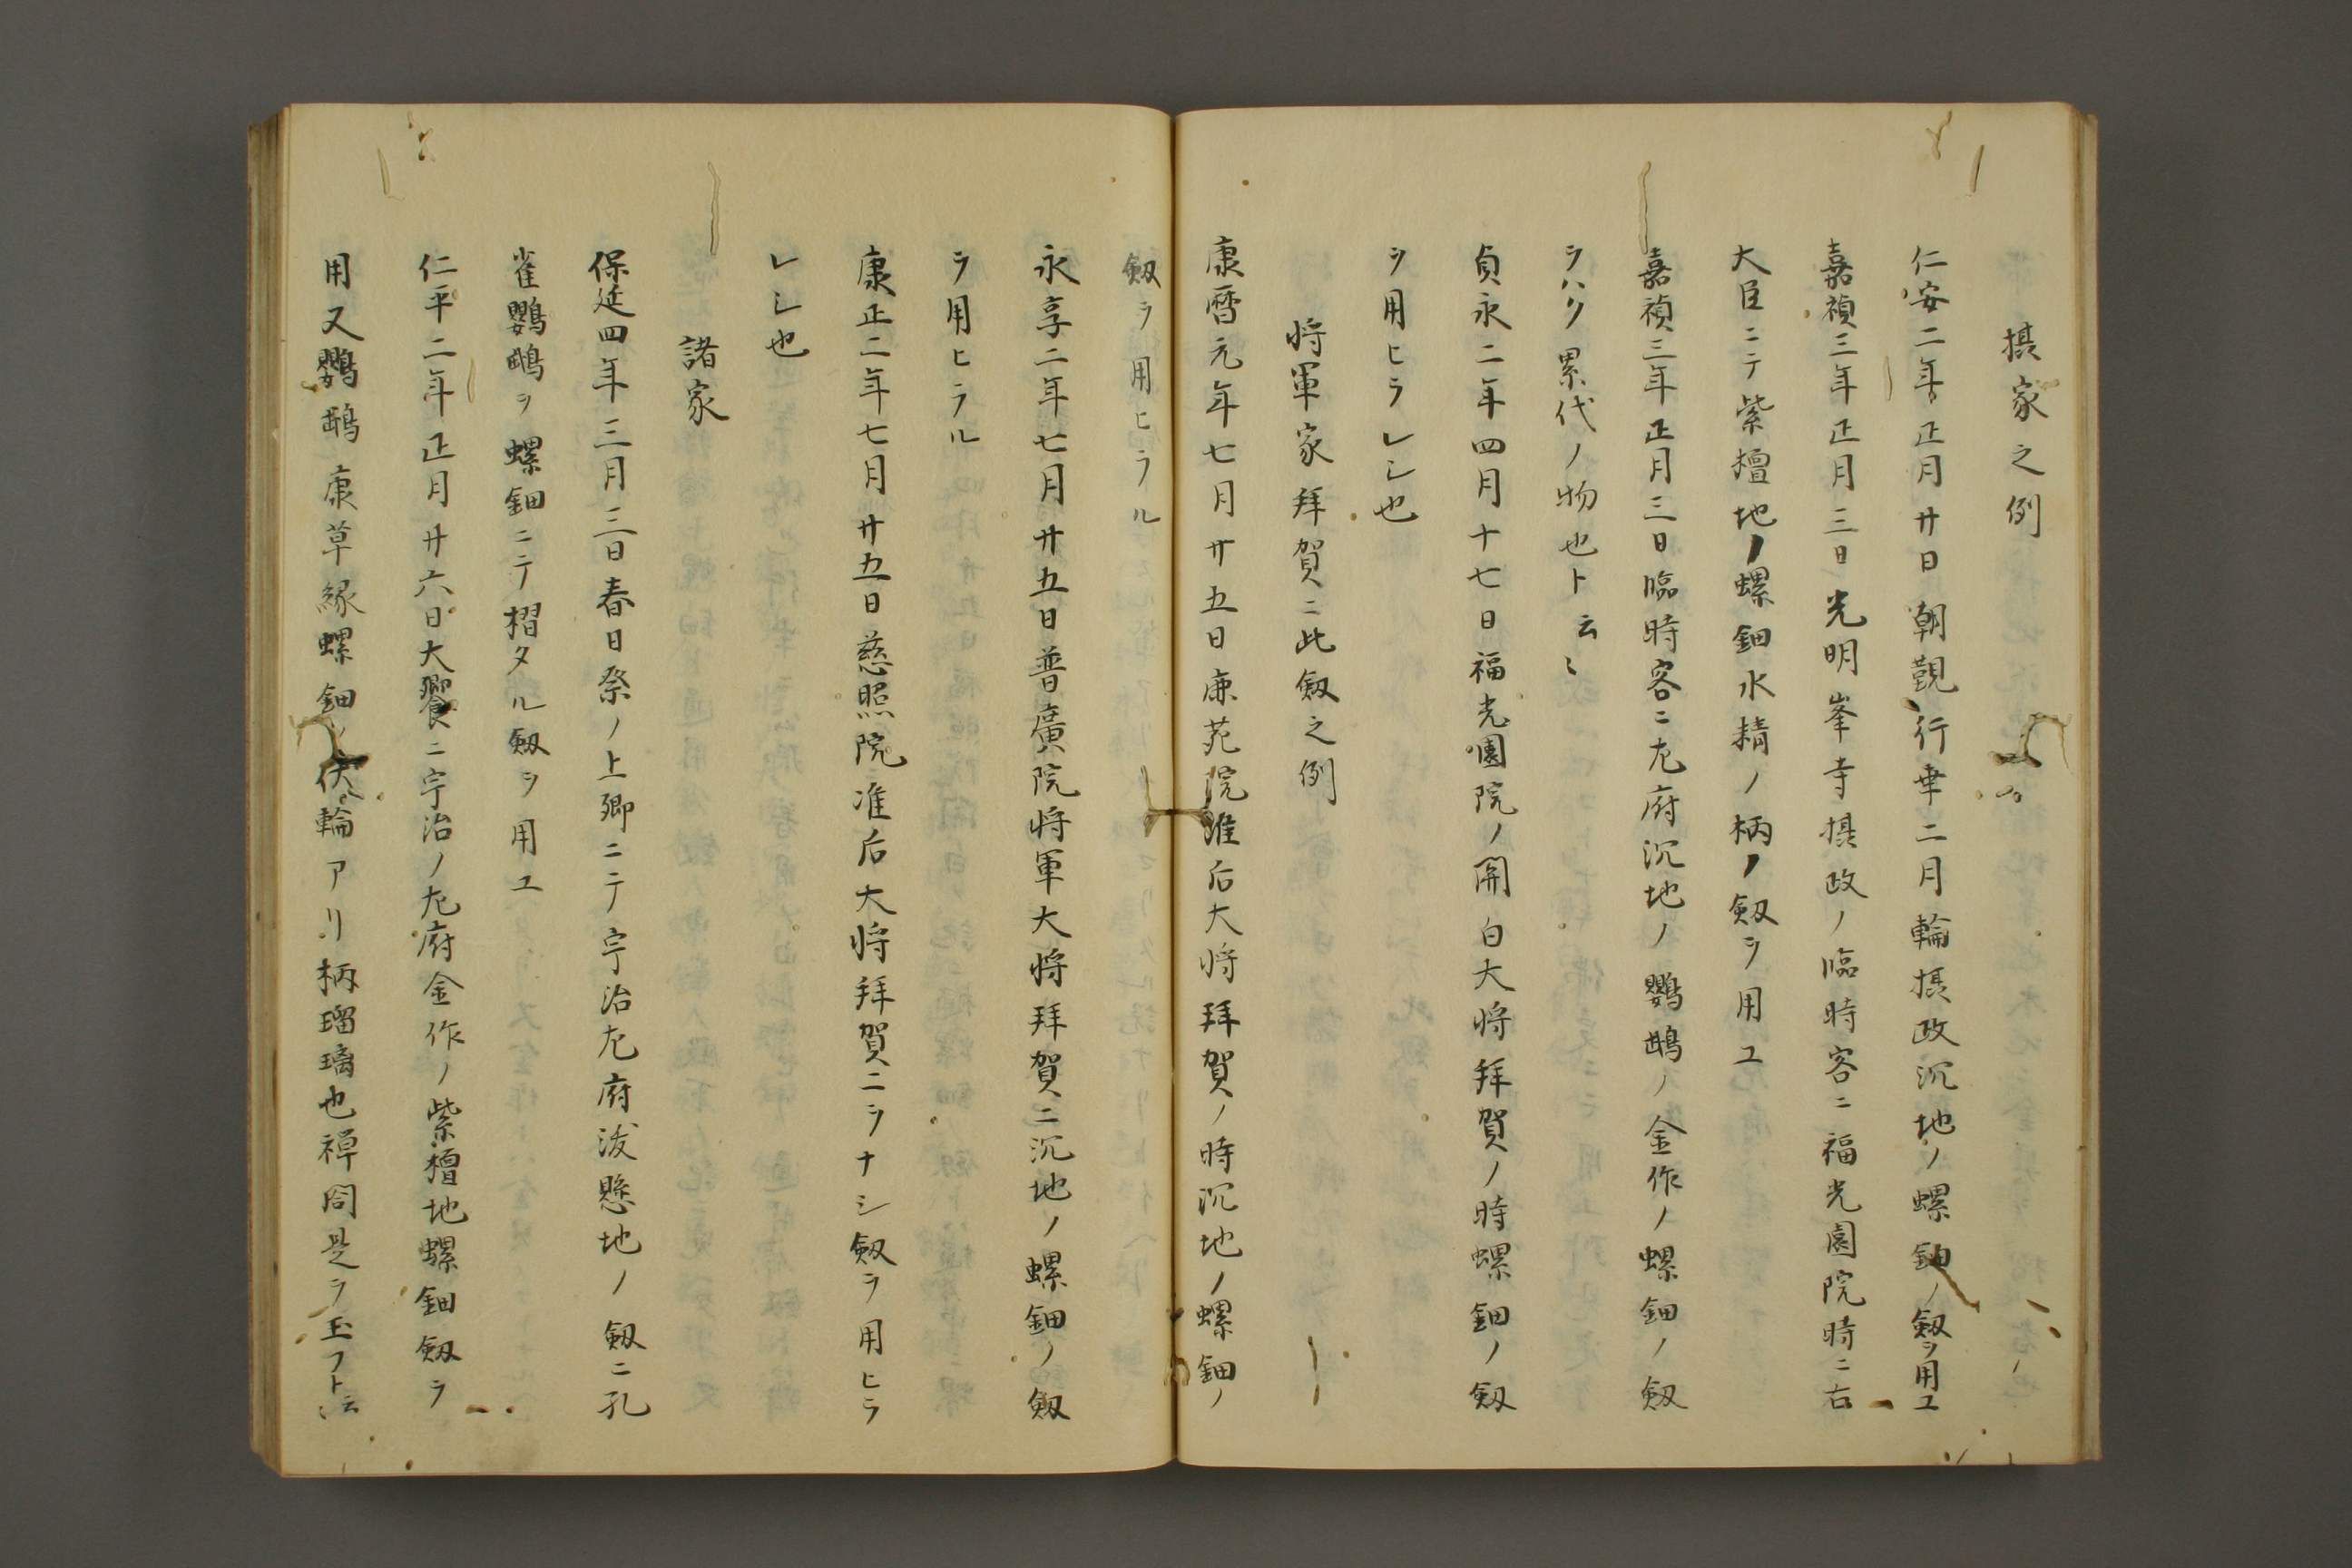 摂家之例
仁安二年正月廿日朝覲行幸二月輪摂政沉地ノ螺鈿ノ劔ヲ用ユ
嘉禎三年正月三日光明峯寺摂政ノ臨時客ニ福光園院時ニ右
大臣ニテ紫檀地ノ螺鈿水精ノ柄ノ劔ヲ用ユ
嘉禎三年正月三日臨時客ニ左府沉地ノ鸚鵡ノ金作ノ螺鈿ノ劔
ヲハク累代ノ物也ト云〻
貞永二年四月十七日福光園院ノ関白大将拜賀ノ時螺鈿ノ劔
ヲ用ヒラレシ也
将軍家拜賀ニ此劔之例
康暦元年七月廿五日鹿苑院准后大将拜賀ノ時沉地ノ螺鈿ノ
劔ヲ用ヒラル
永享二年七月廿五日普廣院将軍大将拜賀ニ沉地ノ螺鈿ノ劔
ヲ用ヒラル
康正二年七月廿五日慈照院准后大将拜賀ニヲナシ劔ヲ用ヒラ
レシ也
諸家
保延四年三月三日春日祭ノ上卿ニテ宇治左府浅懸地ノ劔ニ孔
雀鸚鵡ヲ螺鈿ニテ摺タル劔ヲ用ユ
仁平二年正月廿六日大饗ニ宇治ノ左府金作ノ紫檀地螺鈿劔ヲ
用又鸚鵡康草縁螺鈿ノ伏輪アリ柄瑠璃也禅閤是ヲ玉フト云〻